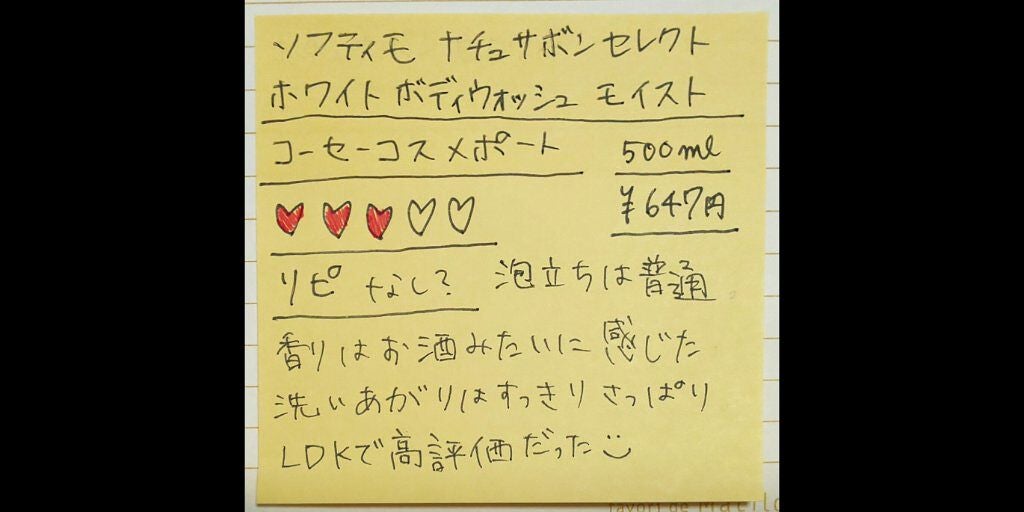 ソフティモ ナチュサボンセレクト
ホワイト ボディウォッシュ モイスト
コーセーコスメポート 500ml
♥♥♥♡♡ ¥647円
リピなし? 泡立ちは普通
香りはお酒みたいに感じた
洗いあがりはすっきりさっぱり
LDKで高評価だった☺